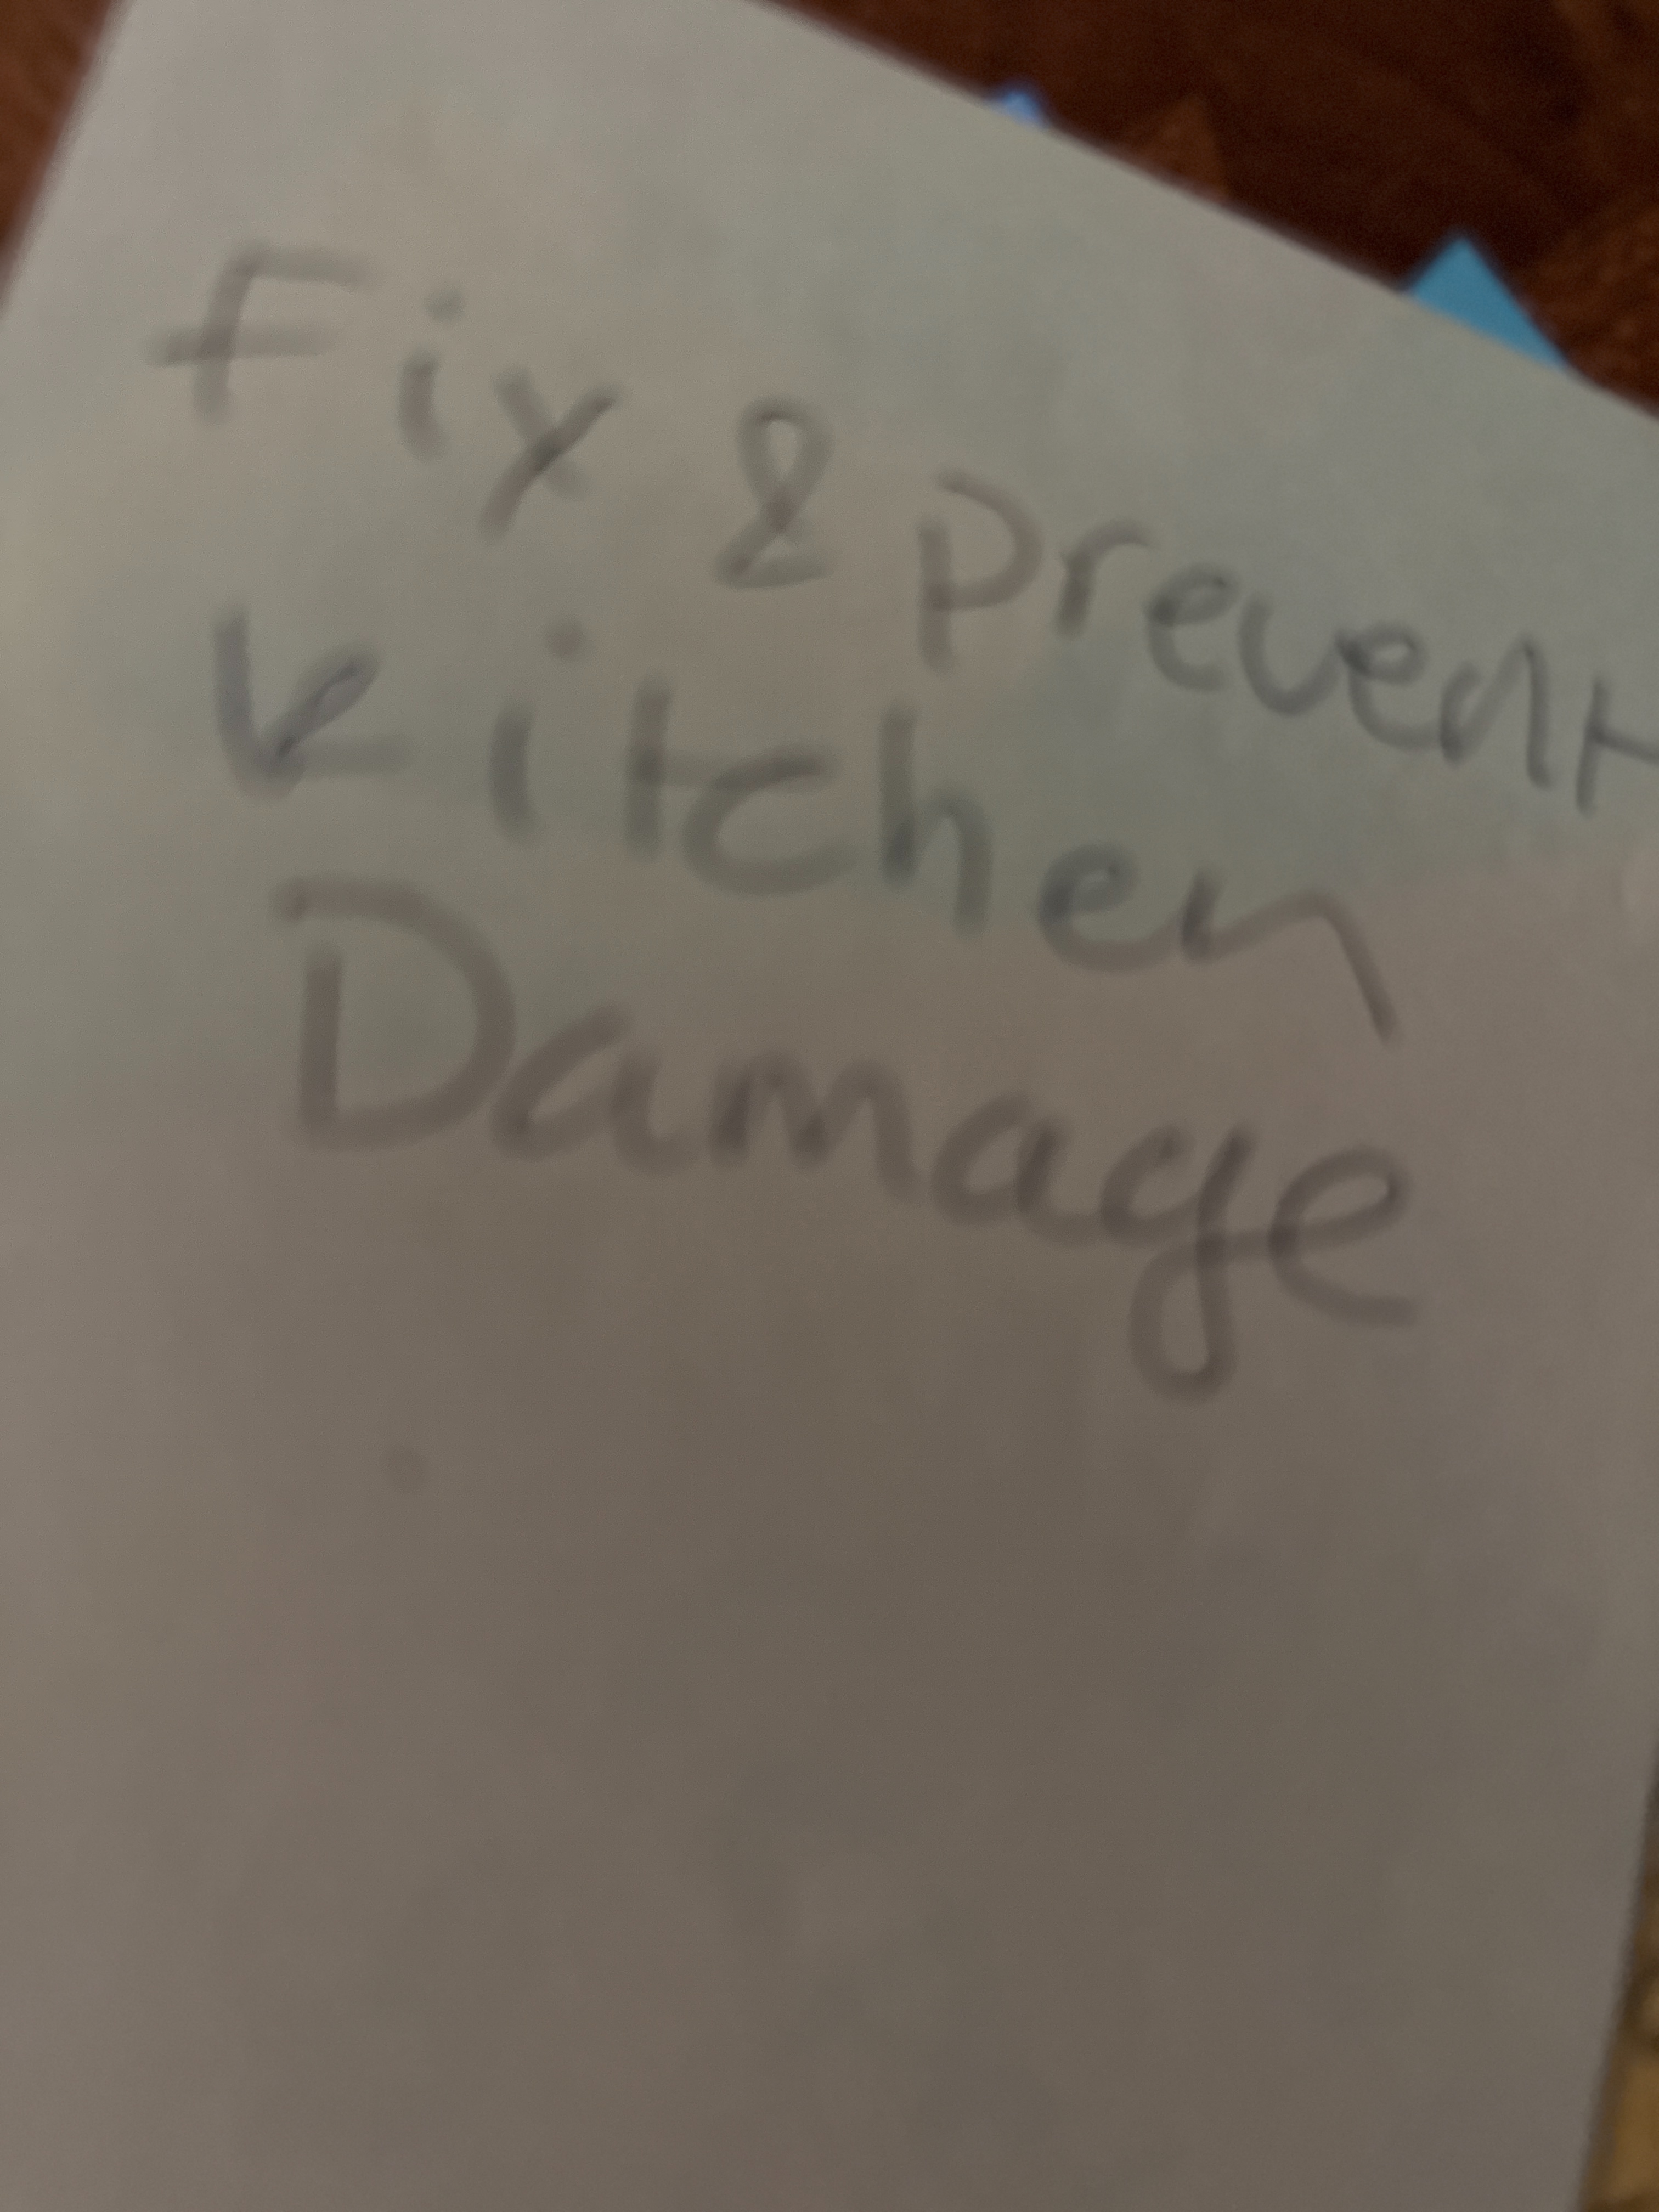 Fix & Prevent
Kitchen
Damage